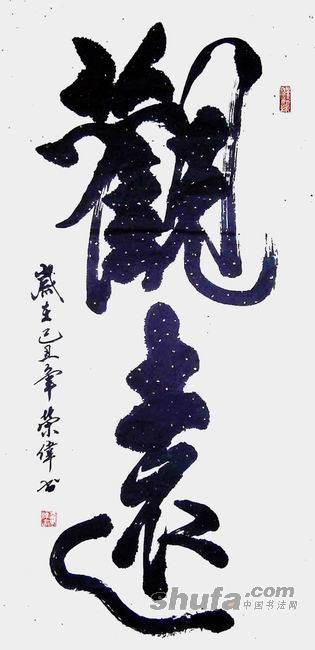 觀遠
歲在己丑年榮偉书
shufa.com
中国书法网